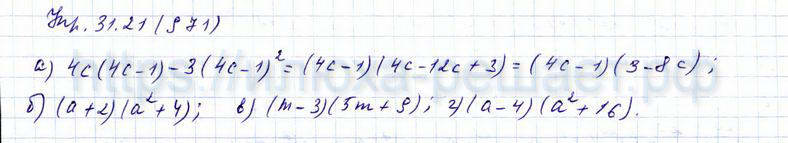 Упр. 31.21 (971)
а) 4c(4c-1)-3(4c-1)²=(4c-1)(4c-12c+3)=(4c-1)(3-8c);
б) (a+2)(a²+4); в) (m-3)(5m+9); г) (a-4)(a²+16).